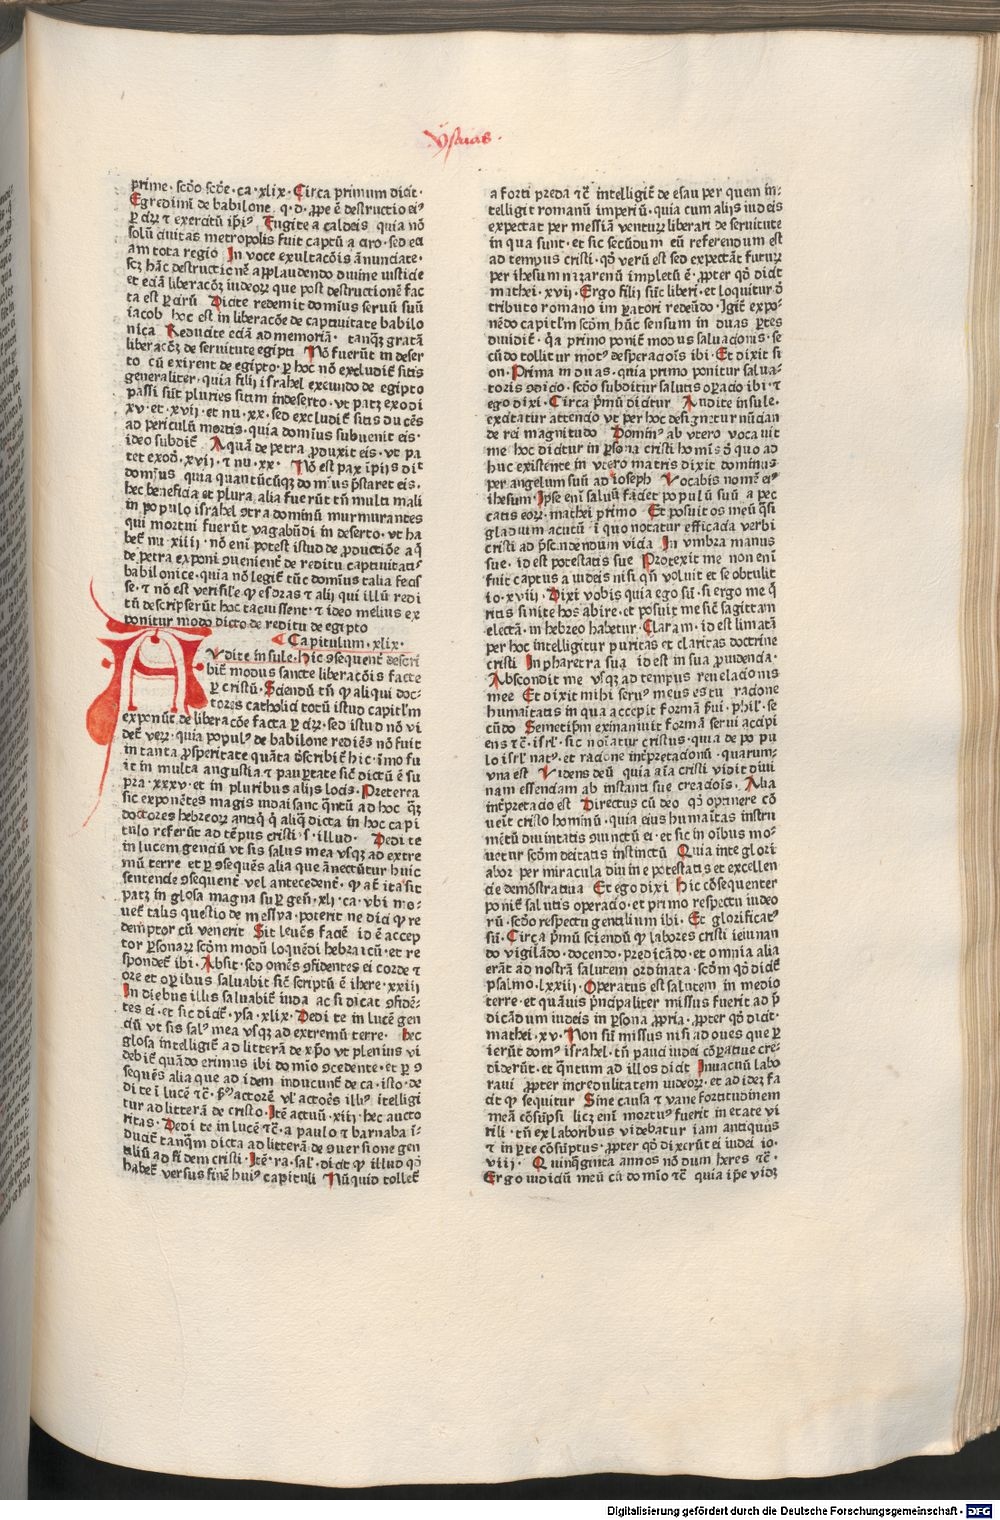 Ysaias.
prime. scd̄o scd̄e. ca. xlix. Circa primum dicit.
Egredimī de babilone. q. d. ꝓpe ē destructio eiꝰ
ꝑ cirꝝ ⁊ exercitū ip̄iꝰ Fugite a caldeis quia nō
solū ciuitas metropolis fuit captā a ciro. sed eci
am tota regio In voce exultacōis ānunciate.
scꝫ hāc destructionē applaudendo diuine iusticie
et eciā liberacōꝫ iudeoꝝ que post destructionē fac
ta est ꝑ cirū Dicite redemit domīus seruū suū
iacob hoc est in liberacōe de captiuitate babilo
nica Reducite eciā ad memoriā. tanqꝫ gratā
liberacōꝫ de seruitute egipti Nō fuerūt in deser
to cū exirent de egipto. ꝑ hoc nō excludit᷑ sitis
generaliter. quia filij israhel exeundo de egipto
passi sūt pluries sitim in deserto. vt patꝫ exodi
xv. et. xvij. et nu. xx. sed excludit᷑ sitis ducēs
ad periculū mortis. quia domīus subuenit eis.
ideo subdit᷑. Aquā de petra ꝓduxit eis. vt pa
tet exod̄. xvij. ⁊ nu. xx. Nō est pax īpijs dit
domīus quia quantūcūqꝫ domīus p̄staret eis.
hec beneficia et plura alia fuerūt tn̄ multi mali
in populo israhel ꝯtra dominū murmurantes
qui mortui fuerūt vagabūdi in deserto. vt ha
bet᷑ nu. xiiij. nō enī potest istud de ꝓductiōe aq̄
de petra exponi ꝯuenient᷑ de reditu captiuitatꝭ
babilonice. quia nō legit᷑ tūc domīus talia fecis
se. ⁊ nō est verisile ꝙ esdras ⁊ alij qui illū redi
tū descripserūt hoc tacuissent. ⁊ ideo melius ex
ponitur modo dicto de reditu de egipto
Capitulum. xlix.
AVdite insule. hic ꝯsequent᷑ descri
bit᷑ modus sancte liberacōis facte
ꝑ cristū. Sciendū tn̄ ꝙ aliqui doc
tores catholici totū istud capitl̄m
exponūt de liberacōe facta ꝑ cirꝝ. sed istud nō vi
det᷑ veꝝ. quia populꝰ de babilone rediēs nō fuit
in tanta ꝓsperitate quāta describit᷑ hic. īmo fu
it in multa angustia. ⁊ paupertate sic̄ dictū ē su
pra. xxxv. et in pluribus alijs locis. Preterea
sic exponētes magis iudaisanc q̄ntū ad hoc qꝫ
doctores hebreoꝝ antiq̄ q̄ aliq̄ dicta in hoc capi
tulo referūt ad tēpus cristi. s. illud. Dedi te
in lucem genciū vt sis salus mea vsqꝫ ad extre
mū terre et ꝑ ꝯsequēs alia que ānectūtur huic
sentencie ꝯsequent᷑ vel antecedent᷑. ꝙ at̄ ita sit
patꝫ in glosa magna suꝑ gen̄. xlj. ca. vbi mo
uet᷑ talis questio de messya. poterit ne dici ꝙ re
demptor cū venerit Sit leuēs faciē id ē accep
tor ꝑsonaꝝ scd̄m modū loquēdi hebraicū. et re
spondet᷑ ibi. Absit. sed om̄es ꝯfidentes ei corde ⁊
ore et oꝑibus saluabit sic̄ scriptū ē ihere. xxiij
In diebus illis saluabit᷑ iuda ac si dicat ꝯfidē
tes ei. et sic dicit᷑. ysa. xlix. Dedi te in lucē gen
ciū vt sis salꝰ mea vsqꝫ ad extremū terre. hec
glosa intelligit᷑ ad litterā de xp̄o vt plenius vi
debit᷑ quādo erimus ibi domīo ꝯcedente. et ꝑ ꝯ
sequēs alia que ad idem inducunt᷑ de ca. isto. de
di te ī lucē ⁊c̄. pꝰ actorē vl̓ actoēs illiꝰ ītelligi
tur ad litterā de cristo. Itē actuū. xiij. hec aucto
ritas. Dedi te in lucē ⁊c̄. a paulo ⁊ barnaba ī
ducit᷑ tanqꝫ dicta ad litterā de ꝯuersione gen
tiliū ad fidem cristi. Itē. ra. sal̓. dicit ꝙ illud qd̄
habet᷑ versus finē huiꝰ capituli Nūquid tollet᷑
a forti preda ⁊c̄ intelligit᷑ de esau per quem in
telligit romanū imperiū. quia cum alijs iudeis
expectat per messiā venturꝝ liberari de seruitute
in qua sunt. et sic secūdum eū referendum est
ad tempus cristi. qd̄ verū est sed expectāt futurꝝ
per ihesum nazarenū impletū ē. ꝓpter qd̄ dicit
mathei. xvij. Ergo filij sūt liberi. et loquitur d̄
tributo romano imꝑatori reddēdo. Igit᷑ expo
nēdo capitl̄m scd̄m hūc sensum in duas ꝑtes
diuidit᷑. q̄a primo ponit᷑ modus saluacionis. se
cūdo tollitur motꝰ desperaciōis ibi. Et dixit si
on. Prima in duas. quia primo ponitur salua
toris ꝯdicio. scd̄o subditur salutis oꝑacio ibi. ⁊
ego dixi. Circa p̄mū dicitur Audite insule.
excitatur attencio vt per hoc designetur nūcian
de rei magnitudo Dominꝰ ab vtero vocauit
me hoc dicitur in ꝑsona cristi homīs d̄ quo ad
huc existente in vtero matris dixit dominus
per angelum suū ad ioseph Vocabis nomē eiꝰ
ihesum. Ipse enī saluū faciet populū suū a pec
catis eoꝝ. mathei primo Et posuit os meū q̄si
gladium acutū ī quo notatur efficacia verbi
cristi ad p̄scindendum vicia In vmbra manus
sue. id est potestatis sue Protexit me non enī
fuit captus a iudeis nisi qn̄ voluit et se obtulit
io. xviij. Dixi vobis quia ego sū. si ergo me q̄
ritis sinite hos abire. et posuit me sic̄ sagittam
electā. in hebreo habetur. Claram. id est limatā
per hoc intelligitur puritas et claritas doctrine
cristi In pharetra sua id est in sua ꝓuidencia.
Abscondit me vsqꝫ ad tempus reuelacionis
mee Et dixit mihi seruꝰ meus es tu racione
humaītatis in qua accepit formā s̄ui. phil̓. se
cūdo Semetip̄m exinaniuit formā serui accipi
ens ⁊c̄. isrl̓. sic noīatur cristus. quia de popu
lo isrl̓ natꝰ. et racione int̄pretacionū. quarum
vna est Videns deū quia aīa cristi vidit diui
nam essenciam ab instanti sue creaciōis. Alia
int̄pretacio est Directus cū deo qd̄ optinere cō
ueīt cristo hominū. quia eius humaītas instru
mētū diuinitatis ꝯiunctū ei. et sic in oībus mo
uetur scd̄m deitatis instinctū Quia in te glori
abor per miracula diuine potestatis et excellen
cie demōstratiua Et ego dixi hic cōsequenter
ponit᷑ salutis operacio. et primo respectu iudeo
rū. scd̄o respectu gentilium ibi. Et glorificatꝰ
sū. Circa p̄mū sciendū ꝙ labores cristi ieiunan
do vigilādo. docendo. predicādo. et omnia alia
erāt ad nostrā salutem ordinata. scd̄m qd̄ dicit᷑
psalmo. lxxiij. Operatus est salutem in medio
terre. et quāuis p̄ncipaliter missus fuerit ad p̄
dicādum iudeis in ꝑsona ꝓpria. ꝓpter qd̄ dicit.
mathei. xv. Non sū missus nisi ad oues que ꝑ
ierūt domꝰ israhel. tn̄ pauci iudei cōꝑatiue cre
diderūt. et q̄ntum ad illos dicit In vacuū labo
raui ꝓpter incredulitatem iudeoꝝ. et ad idē fa
cit ꝙ sequitur Sine causa ⁊ vane fortitudinem
meā cōsūpsi licꝫ enī mortuꝰ fuerit in etate vi
rili. tn̄ ex laboribus videbatur iam antiquus
⁊ in ꝑte cōsūptus. ꝓpter qd̄ dixerūt ei iudei io.
viij. Quinq̄ginta annos nō dum heres ⁊c̄.
Ergo iudiciū meū cū domīo ⁊c̄ quia ip̄e vidꝫ
Digitalisierung gefördert durch die Deutsche Forschungsgemeinschaft - DFG